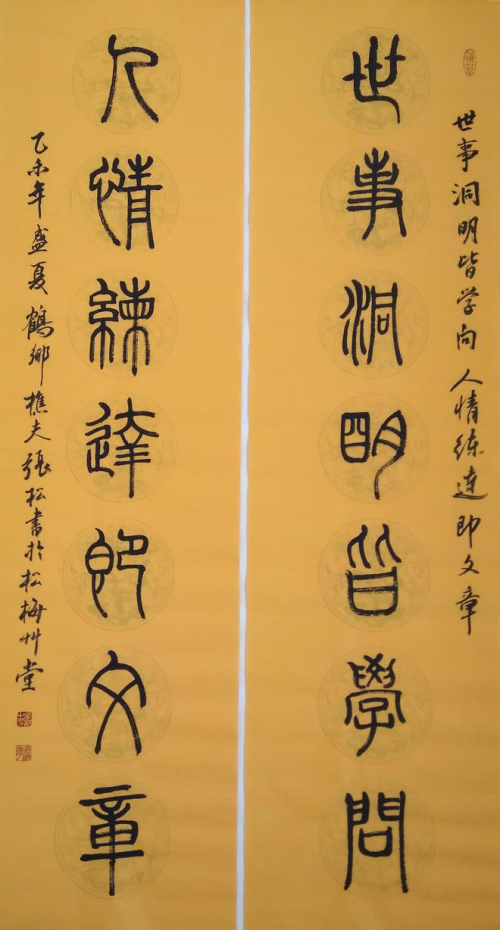 世事洞明皆学问 人情练达即文章
世事洞明皆學問
人情練達即文章
乙未年盛夏鹤鄉樵夫張松書於松梅艸堂